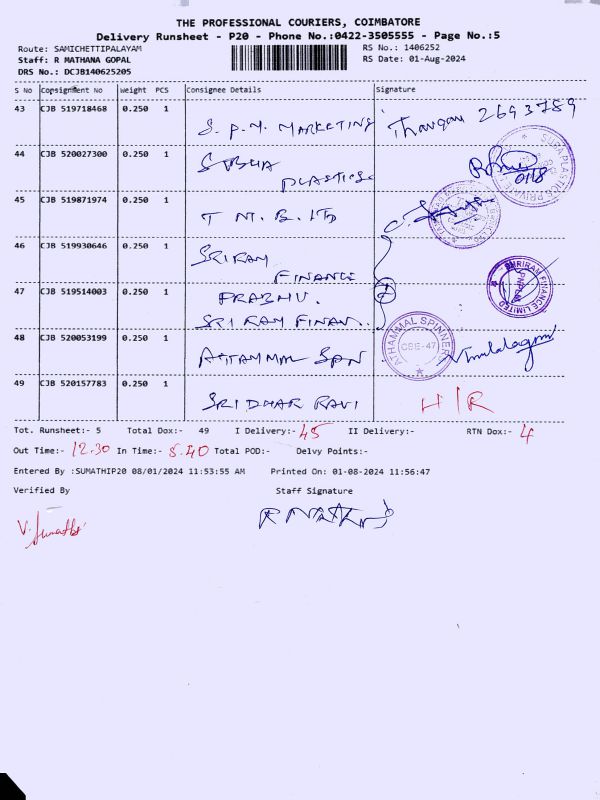 THE PROFESSIONAL COURIERS, COIMBATORE
Delivery Runsheet - P20 - Phone No.:0422-3505555 - Page No.:5
Route: SAMICHETTIPALAYAM RS No.: 1406252
Staff: R MATHANA GOPAL RS Date: 01-Aug-2024
DRS No.: DCJB140625205
S No Consignment No Weight PCS Consignee Details Signature
43 CJB 519718468 0.250 1
S. P. M. MARKETING 2693789
44 CJB 520027300 0.250 1
PLASTICS
SUBA PLASTICS PRIVATE
01/8
45 CJB 519871974 0.250 1
T M. B. LTD
46 CJB 519930646 0.250 1
SRIRAM
FINANCE
SHRIRAM FINANCE LIMITED
47 CJB 519514003 0.250 1
PRABHU.
SRI RAM FINAN.
48 CJB 520053199 0.250 1
ATHAMMAL SPINNER
CBE-47
49 CJB 520157783 0.250 1
SRIDHAR RAVI H/R
Tot. Runsheet:- 5 Total Dox:- 49 I Delivery:- 45 II Delivery:- RTN Dox:- 4
Out Time:- 12.30 In Time:- 5.40 Total POD:- Delvy Points:-
Entered By :SUMATHIP20 08/01/2024 11:53:55 AM Printed On: 01-08-2024 11:56:47
Verified By Staff Signature
V. Sumathi